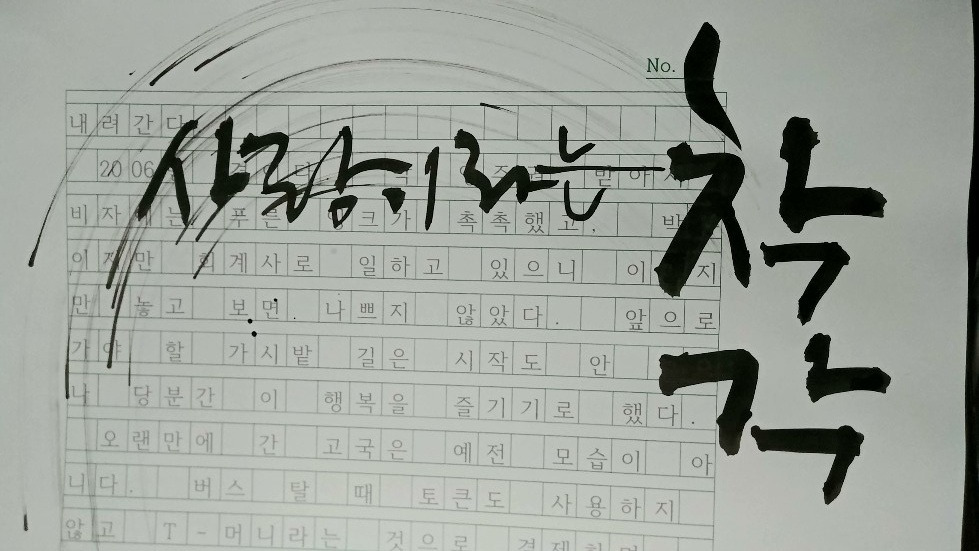 No.
내려간다
사랑이라는 착각
2006
비자 는 푸른 잉크가 촉촉했고. 박
이지만 회계사로 일하고 있으니 이 지
만 놓고 보면. 나쁘지 않았다. 앞으로
가야 할 가시밭 길은 시작도 안
나 당분간 이 행복을 즐기기로 했다.
오랜만에 간 고국은 예전 모습이 아
니다. 버스 탈 때 토큰도 사용하지
않고 T-머니라는 것으로 결제하며